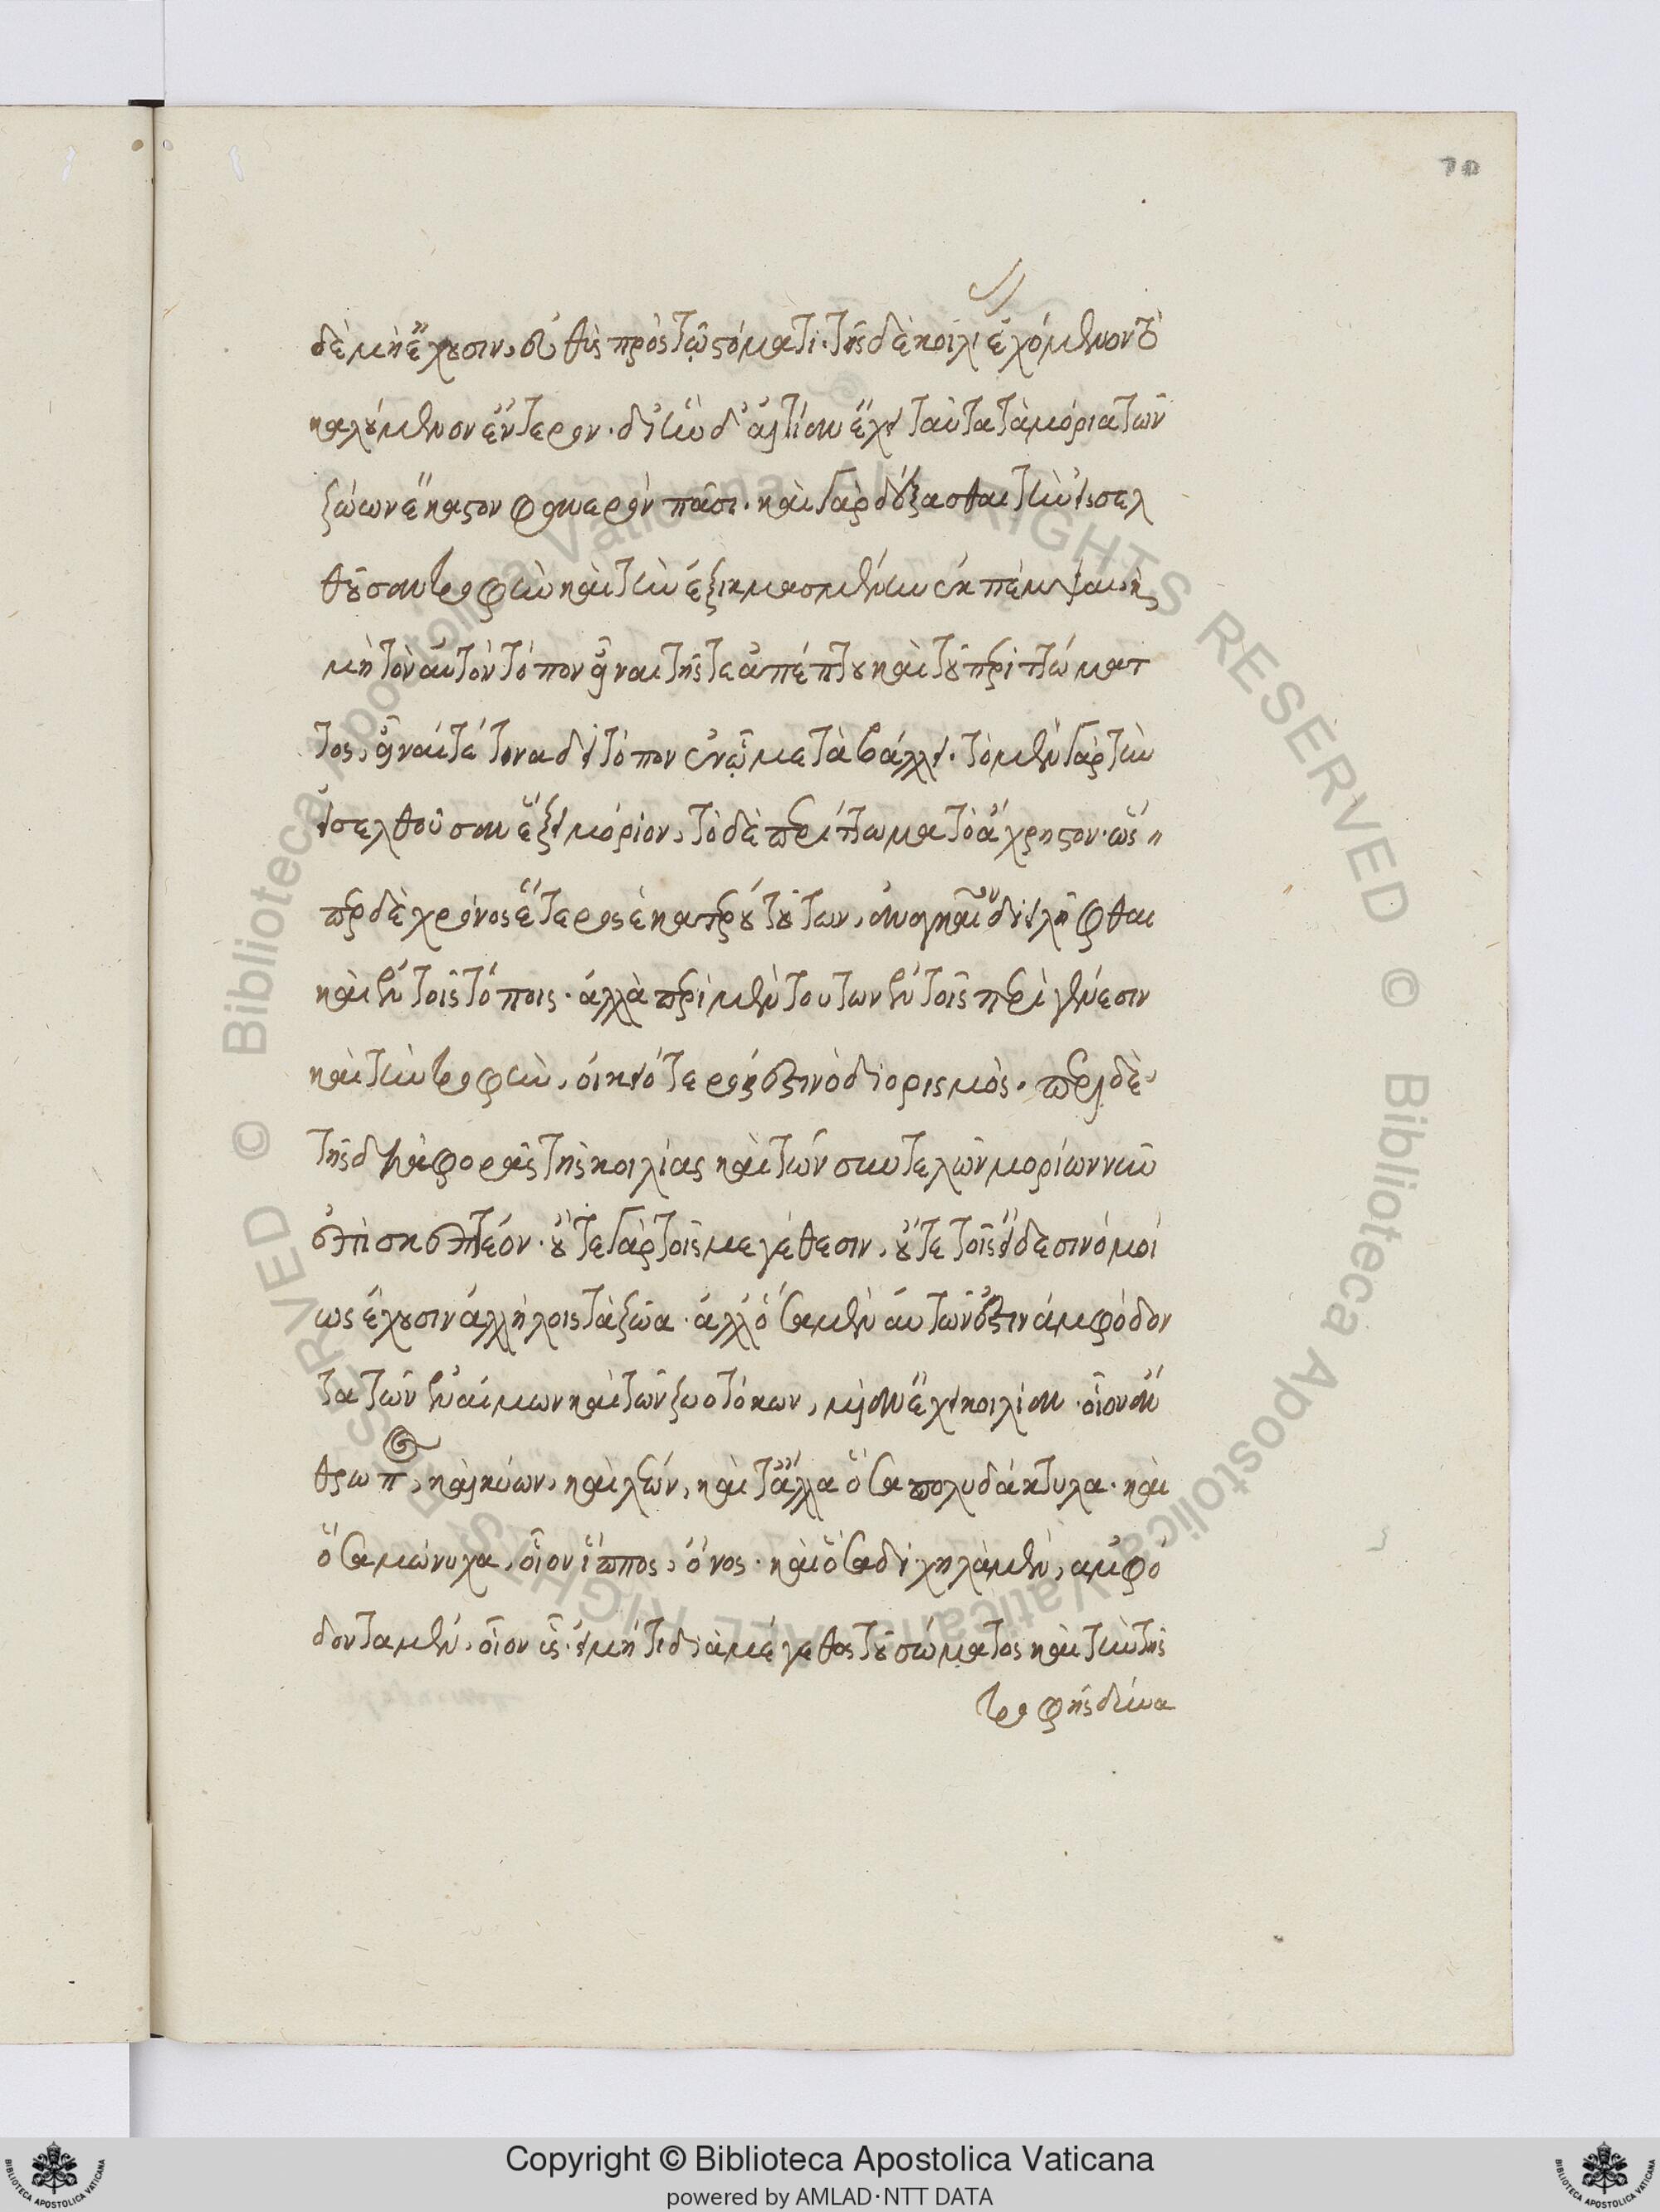 70
δὲ μὴ ἔχουσιν, εὐθὺς πρὸς τῷ στόματι· τῆς δὲ κοιλί ἐχόμενον τὸ
καλούμενον ἔντερον· δι' ἣν δ' αἰτίαν ἔχει ταῦτα τὰ μόρια τῶν
ζώων ἕκαστον φανερὸν πᾶσι· καὶ γὰρ δέξασθαι τὴν εἰσελ
θοῦσαν τροφὴν καὶ τὴν ἐξικμασμένην ἐκπέμψαι· καὶ
μὴ τὸν αὐτὸν τόπον εἶναι τῆς τε ἀπέπτου καὶ τοῦ περιττώματ
τος, εἶναί τέ τινα δεῖ τόπον ἐν ᾧ μεταβάλλει· τὸ μὲν γὰρ τὴν
εἰσελθοῦσαν ἕξει μόριον, τὸ δὲ περίττωμα τὸ ἄχρηστον· ὥσ
περ δὲ χρόνος ἕτερος ἑκατέρου τούτων, ἀναγκαῖον διειλῆφθαι
καὶ ἐν τοῖς τόποις· ἀλλὰ περὶ μὲν τούτων ἐν τοῖς περὶ γένεσιν
καὶ τὴν τροφὴν, οἰκειότερός ἐστιν ὁ διορισμὸς· περὶ δὲ
τῆς διαφορᾶς τῆς κοιλίας καὶ τῶν συντελῶν μορίων νῦν
ἐπισκεπτέον· οὔτε γὰρ τοῖς μεγέθεσιν, οὔτε τοῖς εἴδεσιν ὁμοί
ως ἔχουσιν ἀλλήλοις τὰ ζῶα· ἀλλ' ὅσα μὲν αὐτῶν ἐστιν ἀμφόδον
τα τῶν ἐναίμων καὶ τῶν ζωοτόκων, μίαν ἔχει κοιλίαν· οἷον ἄν
θρωπος, καὶ κύων, καὶ λέων, καὶ τἄλλα ὅσα πολυδάκτυλα· καὶ
ὅσα μώνυχα, οἷον ἵππος, ὄνος· καὶ ὅσα διχηλὰ μὲν, ἀμφό
δοντα μὲν, οἷον ὗς· εἰ μή τι διὰ μέγεθος τοῦ σώματος καὶ τὴν τῆς
τροφῆς δύνα
Copyright © Biblioteca Apostolica Vaticana
powered by AMLAD·NTT DATA